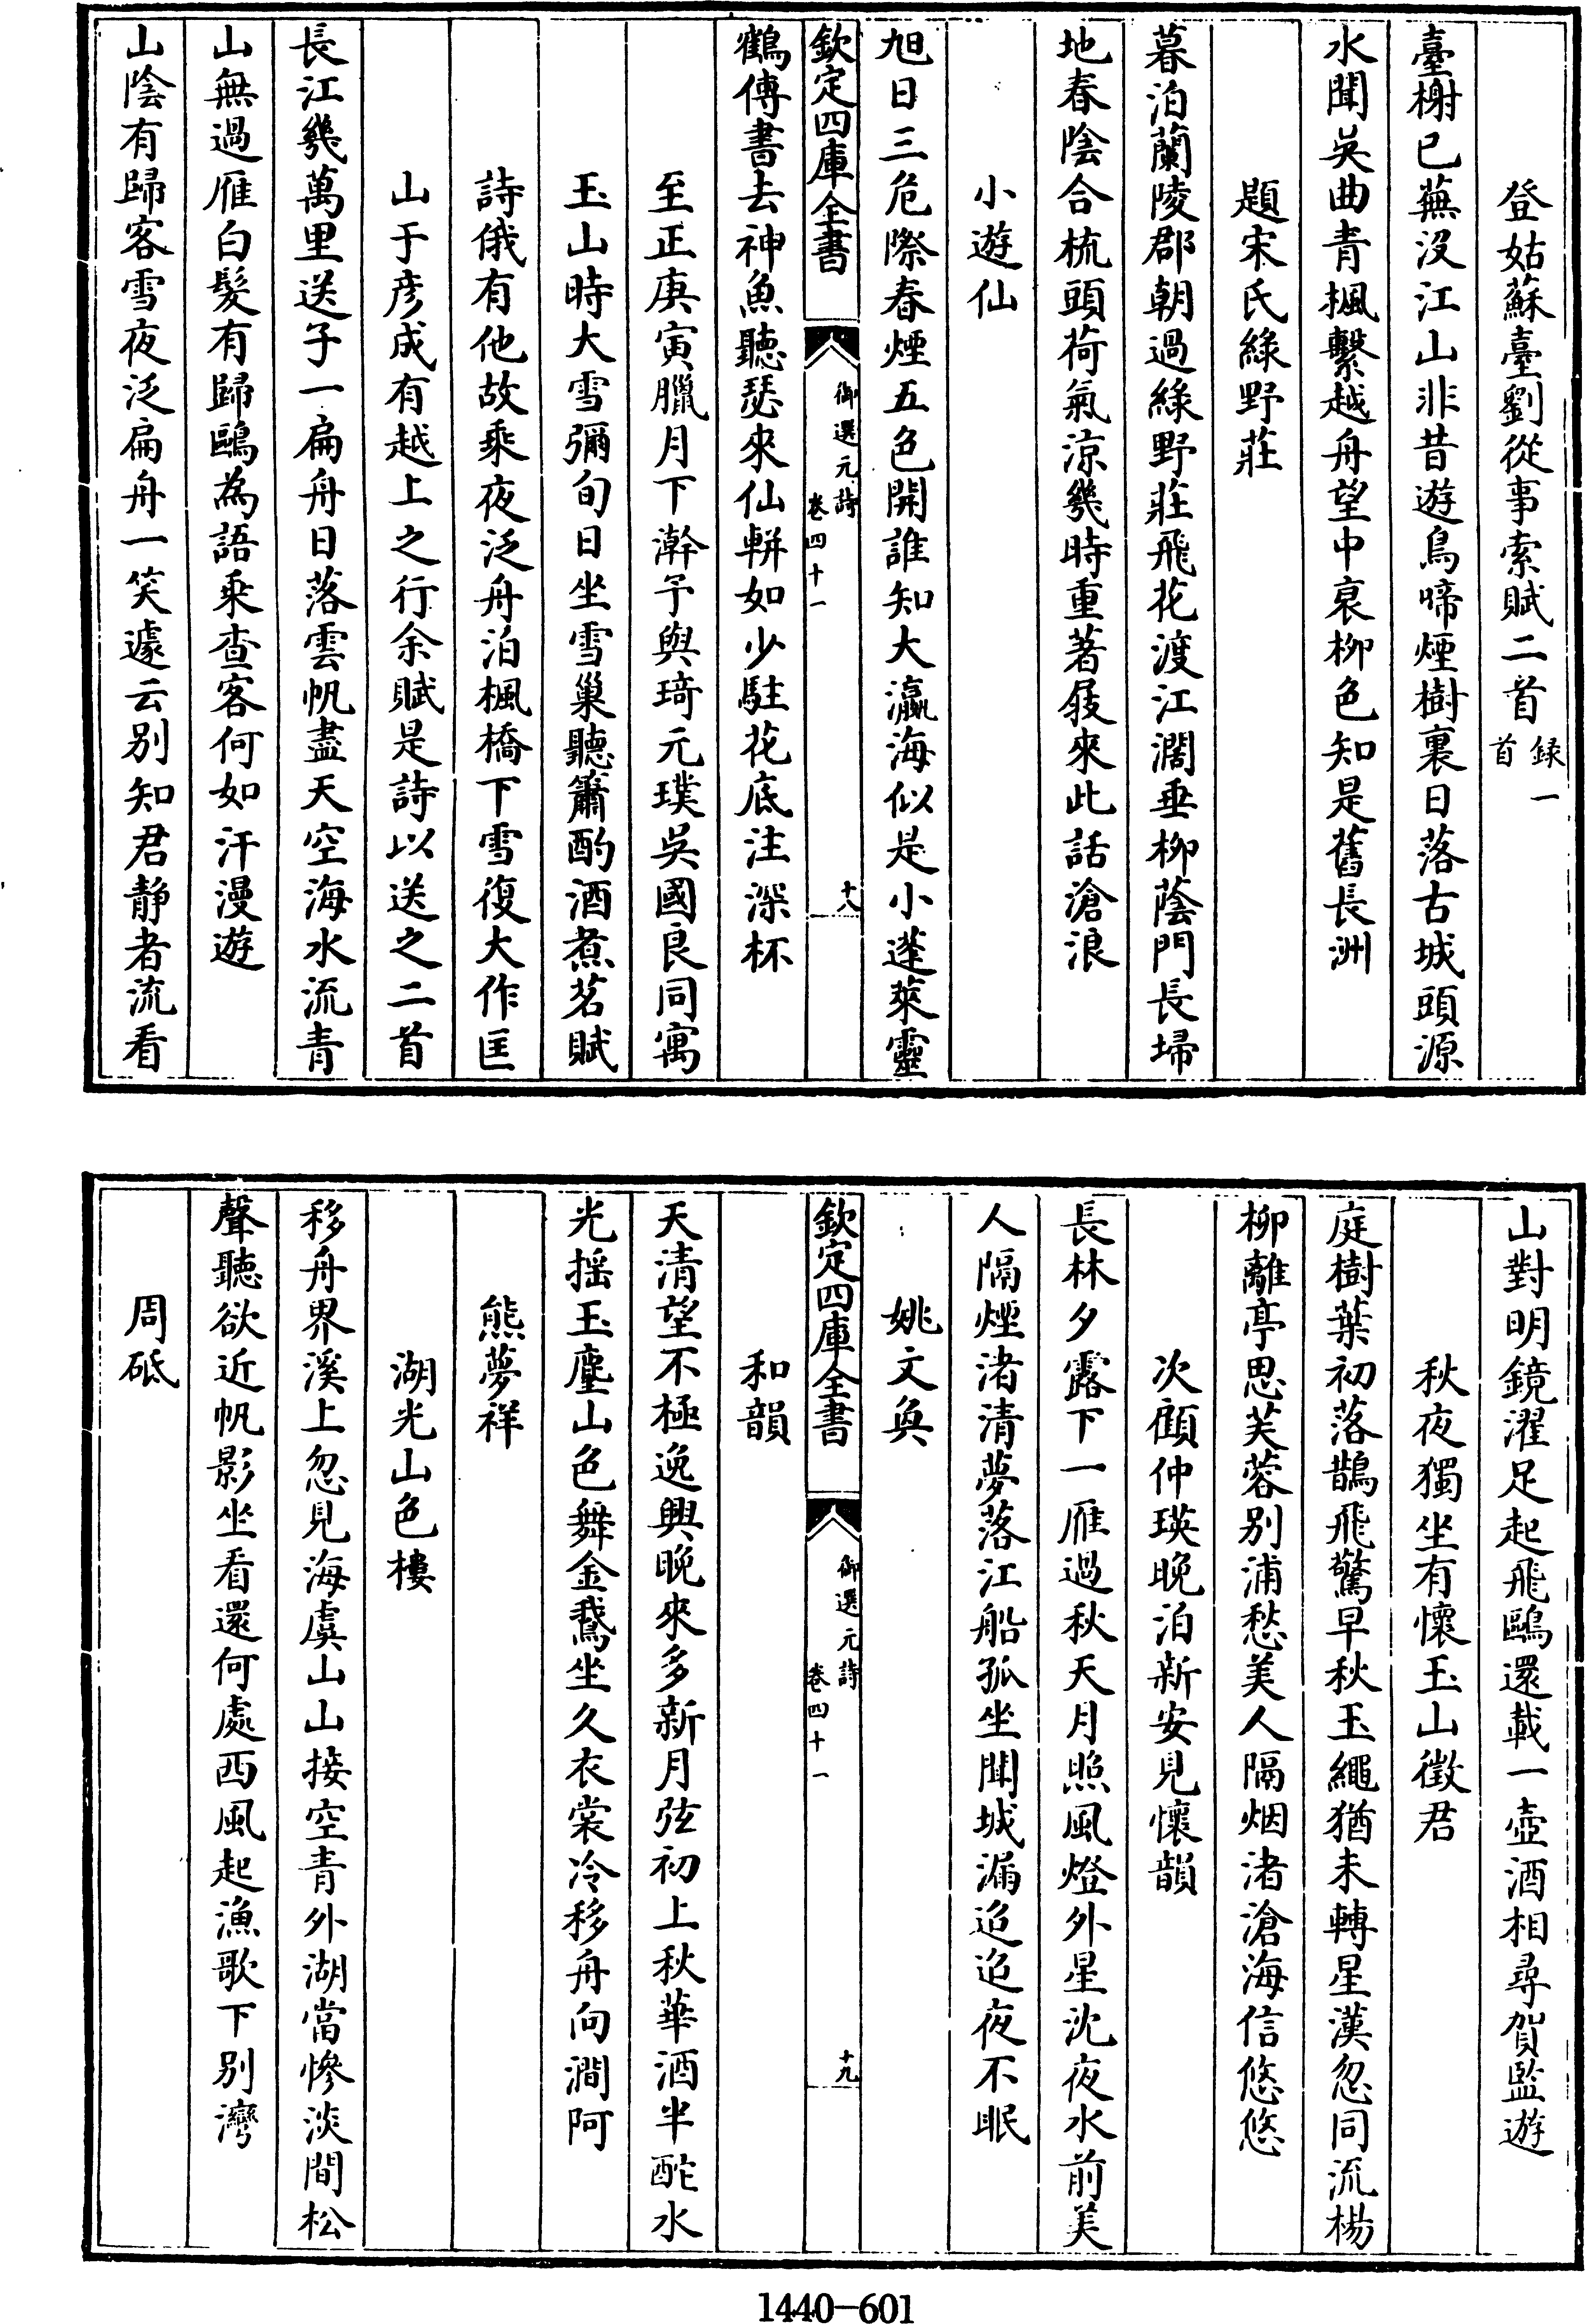 登姑蘇臺劉從事索賦二首錄一首
臺榭已蕪沒江山非昔遊鳥啼煙樹裏日落古城頭源
水聞吳曲青楓繫越舟望中衰柳色知是舊長洲
題宋氏綠野莊
暮泊蘭陵郡朝過綠野莊飛花渡江濶垂柳蔭門長埽
地春陰合梳頭荷氣涼幾時重著屐來此話滄浪
小遊仙
旭日三危際春煙五色開誰知大瀛海似是小蓬萊靈
欽定四庫全書
御選元詩
卷四十一
十八
鶴傳書去神魚聽瑟來仙輧如少駐花底注深杯
至正庚寅臘月下澣予與琦元璞吳國良同寓
玉山時大雪彌旬日坐雪巢聽簫酌酒煮茗賦
詩俄有他故乘夜泛舟泊楓橋下雪復大作匡
山于彥成有越上之行余賦是詩以送之二首
長江幾萬里送子一扁舟日落雲帆盡天空海水流青
山無過雁白髮有歸鷗為語乘查客何如汗漫遊
山陰有歸客雪夜泛扁舟一笑遽云別知君靜者流看
山對明鏡濯足起飛鷗還載一壺酒相尋賀監遊
秋夜獨坐有懷玉山徵君
庭樹葉初落鵲飛驚早秋玉繩猶未轉星漢忽同流楊
柳離亭思芙蓉別浦愁美人隔烟渚滄海信悠悠
次顧仲瑛晚泊新安見懷韻
長林夕露下一雁過秋天月照風燈外星沈夜水前美
人隔煙渚清夢落江船孤坐聞城漏迢迢夜不眠
姚文奐
欽定四庫全書
御選元詩
卷四十一
十九
和韻
天清望不極逸興晚來多新月弦初上秋華酒半酡水
光揺玉麈山色舞金鵞坐久衣裳冷移舟向澗阿
熊夢祥
湖光山色樓
移舟界溪上忽見海虞山山接空青外湖當慘淡間松
聲聽欲近帆影坐看還何處西風起漁歌下別灣
周砥
1440-601